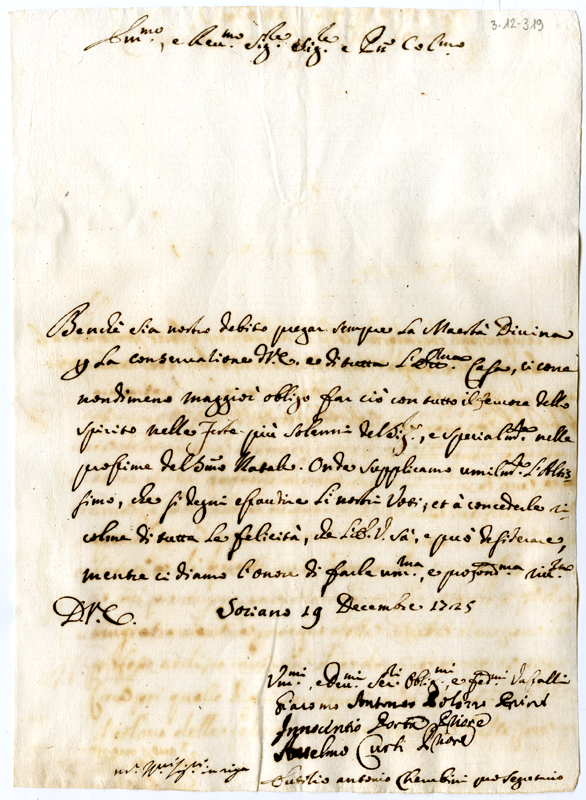 3-12-319
e Reu.mo Sig.re Sig.re e Pñ Colmo
Benche sia nostro debito pregar sempre La Maestà Divina
La conseruatione di V.E. e di tutta L' Casa, ci corre
nondimeno maggior obligo far ciò con tutto il feruore dello
spirito nelle feste più solenni del Sig.re, e specialm.te nelle
prossime del S.mo Natale. Onde supplicamo umilm.te L'Altis=
simo, che si degni esaudire Li nostri Voti, et à concederle ri=
colme di tutta La felicità, che V. sà, e può desiderare,
mentre ci diamo L'onore di farle um.ma, e profond.ma riu.za
D.V.E. Soriano 19 Decembre 1725
Um.mi, e Deu.mi Ser.ri Oblig.mi, e fed.mi Vassalli
Giacomo Antonio Priore
Innocentio Porta Priore
Anselmo Curti Priore
Antonio Cherubini pro Segretario